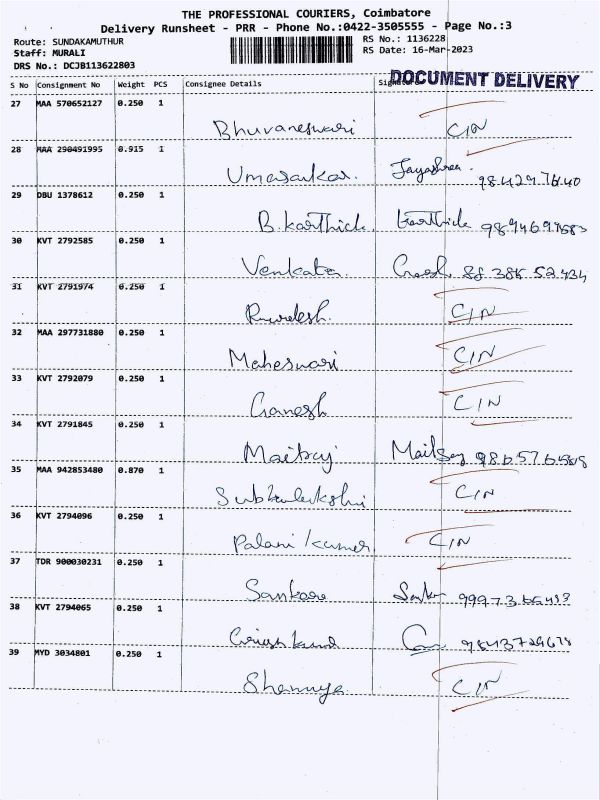 THE PROFESSIONAL COURIERS, Coimbatore
Delivery Runsheet - PRR - Phone No.:0422-3505555 - Page No.:3
Route: SUNDAKAMUTHUR RS No.: 1136228
Staff: MURALI RS Date: 16-Mar-2023
DRS No.: DCJB113622803
DOCUMENT DELIVERY
S No Consignment No Weight PCS Consignee Details Signature
27 MAA 570652127 0.250 1
Bhuvaneswari CIN
28 MAA 290491995 0.915 1
Umasankar.
29 DBU 1378612 0.250 1
B. Karthick. Karthick
30 KVT 2792585 0.250 1
Venkata
31 KVT 2791974 0.250 1
CIN
32 MAA 297731880 0.250 1
Maheswari CIN
33 KVT 2792079 0.250 1
Ganesh CIN
34 KVT 2791845 0.250 1
35 MAA 942853480 0.870 1
CIN
36 KVT 2794096 0.250 1
Palani kumar CIN
37 TDR 900030231 0.250 1
38 KVT 2794065 0.250 1
39 MYD 3034801 0.250 1
CIN